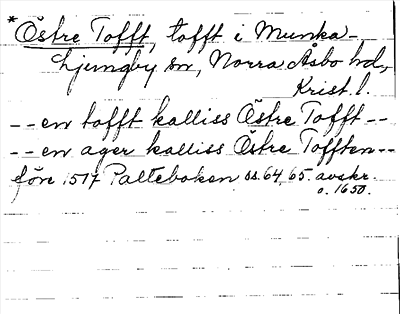 *Östre Tofft, tofft i Munka-
Ljungby sn, Norra Åsbo hd,
Krist. l.
--en tofft kalliss Östre Tofft--
--en ager kalliss Östre Tofften--
före 1517 Palteboken ss. 64, 65. avskr.
o. 1650.